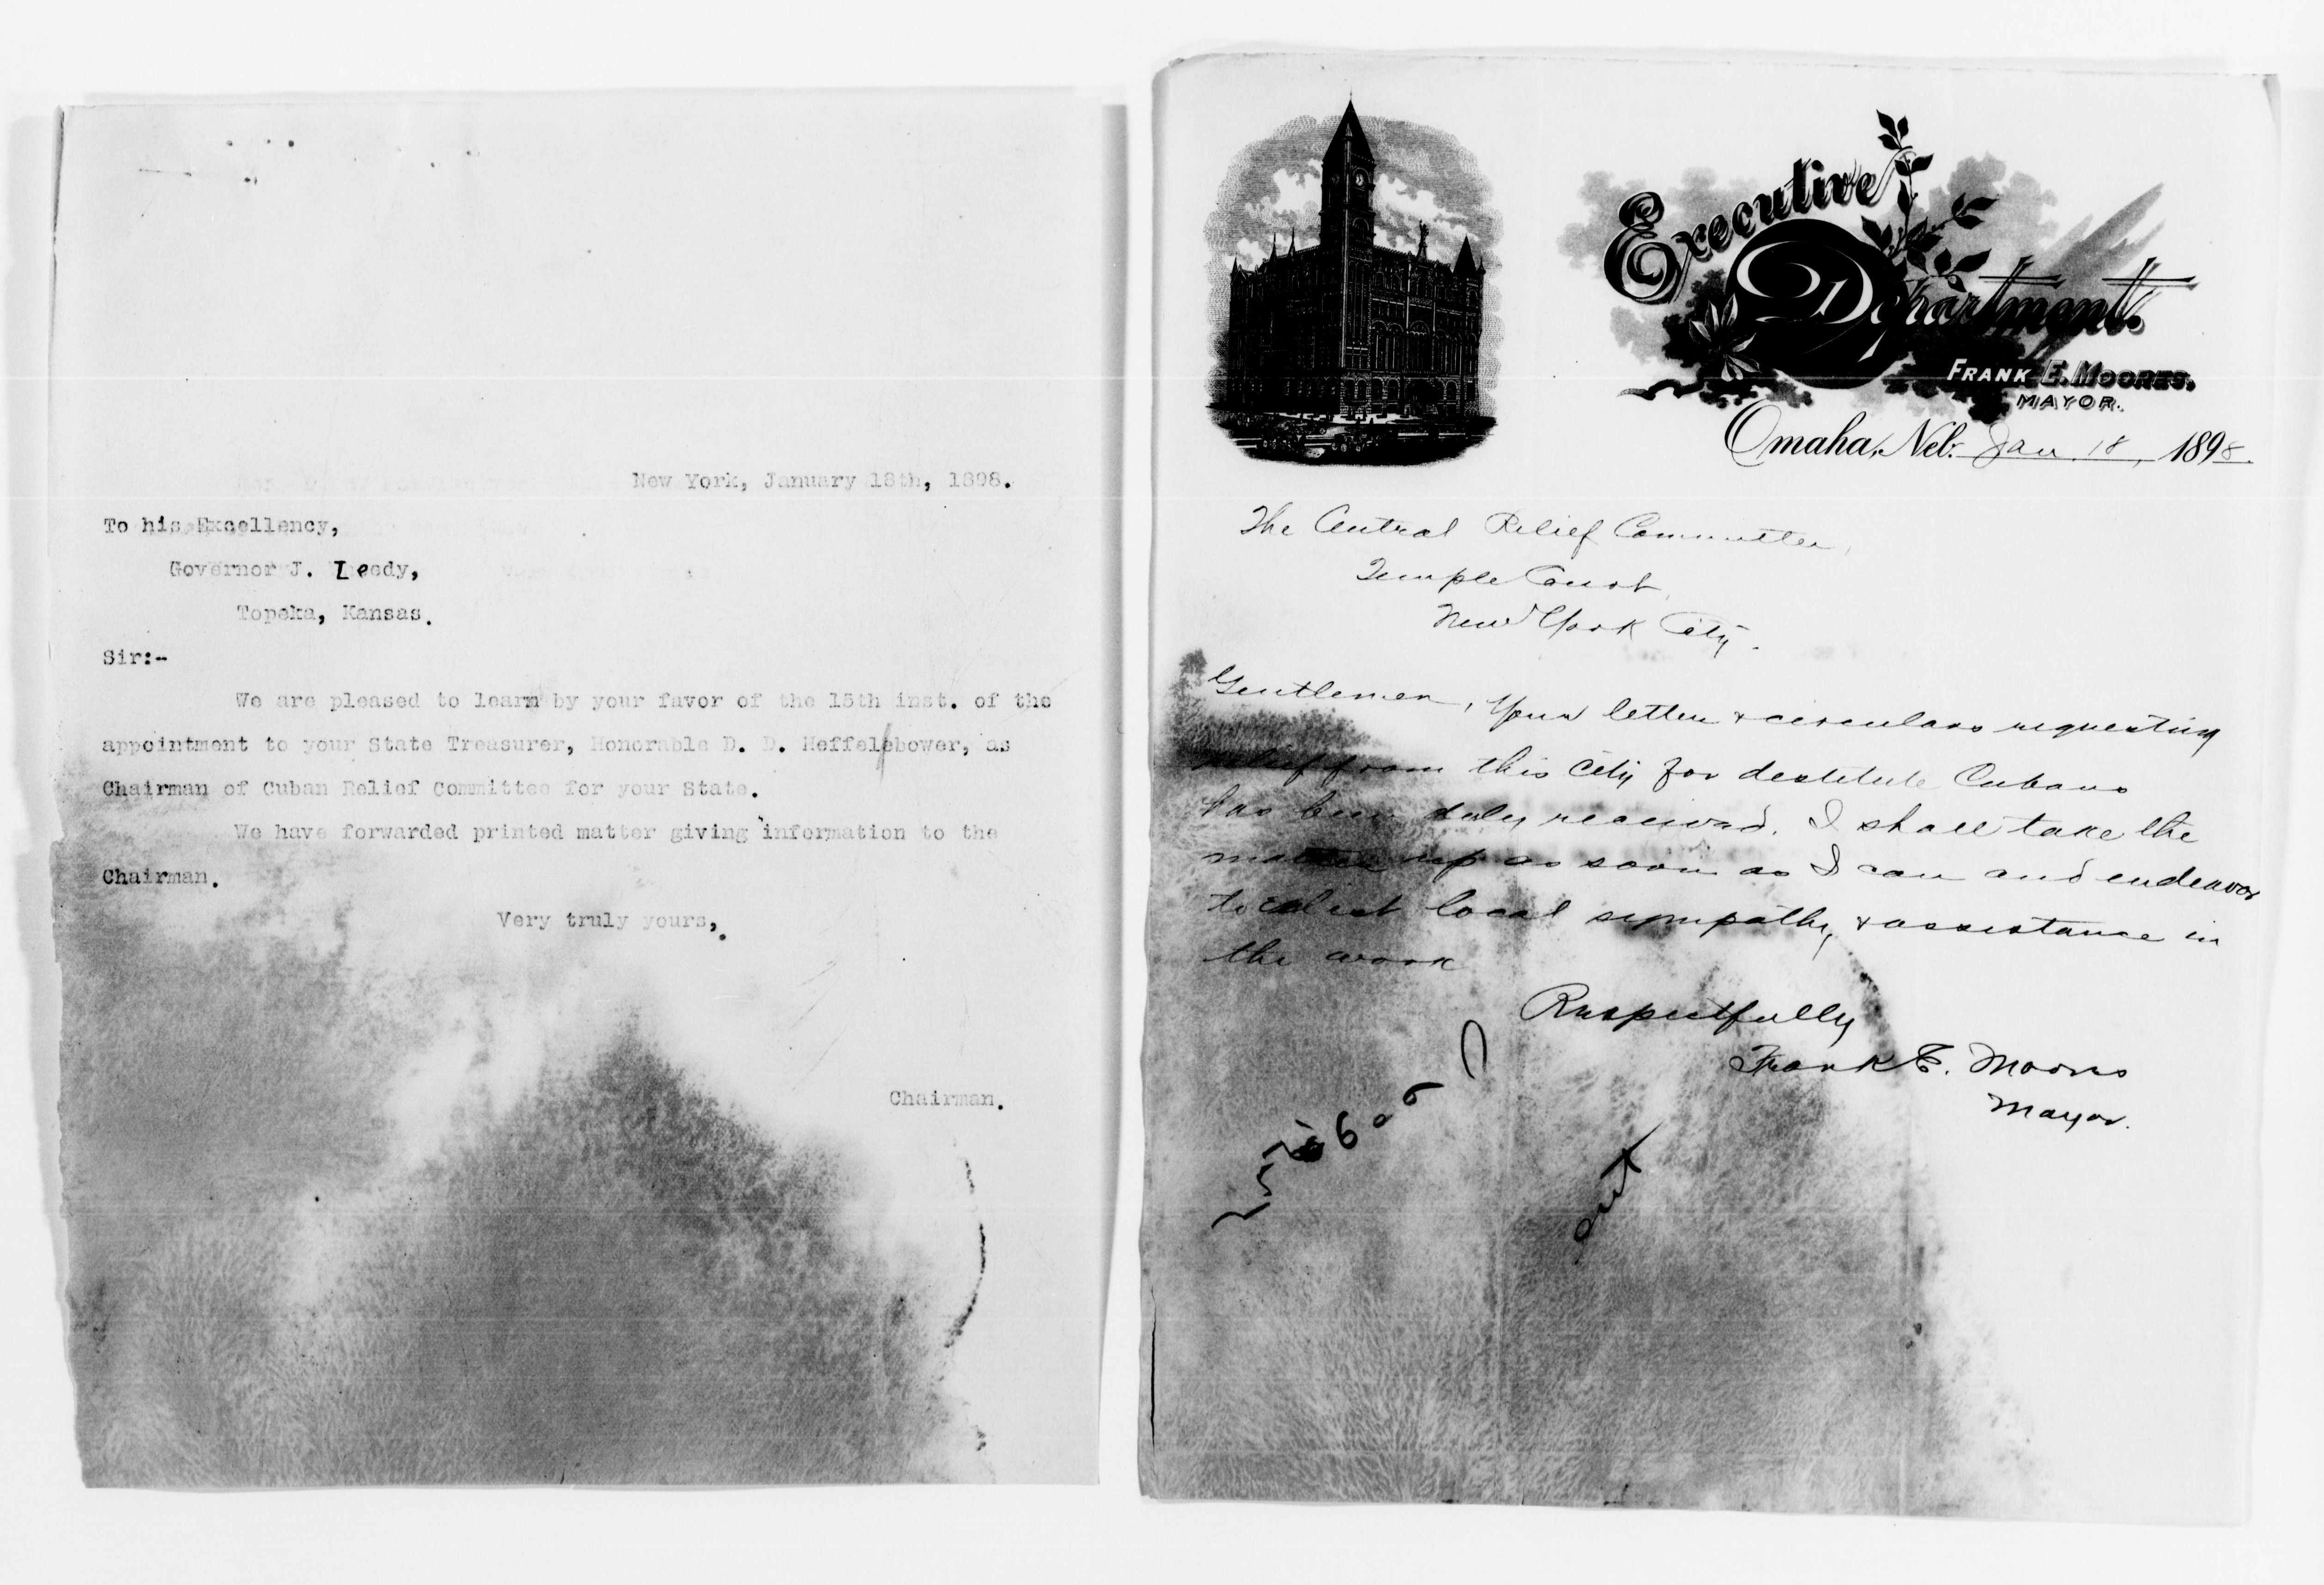 New York, January 18th, 1898.
To his Excellency,
Governor J. Leedy,
Topeka, Kansas.
Sir:-
We are pleased to learn by your favor of the 15th inst. of the
appointment to your State Treasurer, Honorable D. D. Heffelebower, as
Chairman of Cuban Relief Committee for your State.
We have forwarded printed matter giving information to the
Chairman.
Very truly yours,.
Chairman.
Executive
Department.
FRANK E. MOORES,
MAYOR.
Omaha, Neb. Jan. 18, 1898.
The Central Relief Committee,
Temple Court,
New York City.
Gentlemen, Your letter & circulars requesting
relief from this city for destitute Cubans
has been duly received. I shall take the
matter up as soon as I can and endeavor
to enlist local sympathy & assistance in
the work
Respectfully
Frank E. Moores
Mayor.
ant